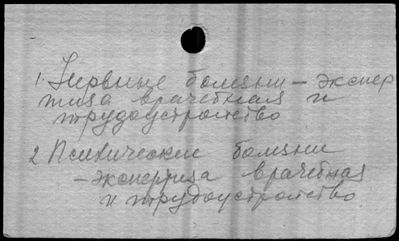 1. Нервные болезни — экспер
тиза врачебная и
трудоустройство
2 Психические болезни
— экспертиза врачебная
и трудоустройство